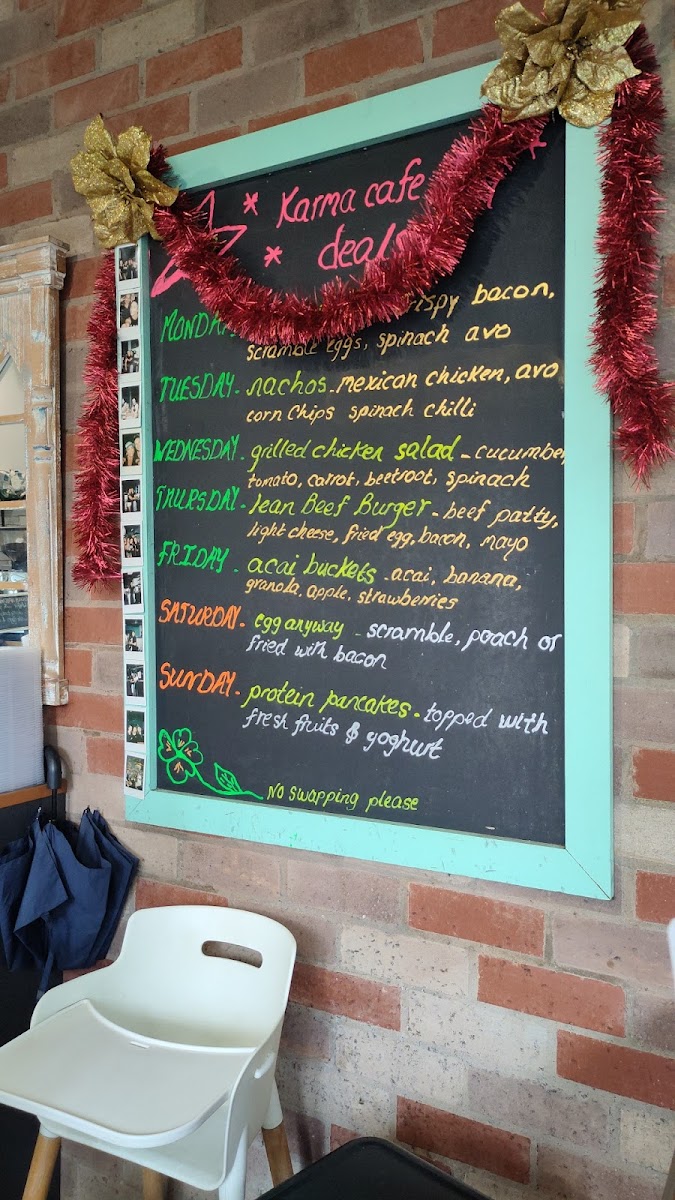 * Karma cafe
* deals
MONDAY
crispy bacon,
scramble eggs, spinach avo
TUESDAY - nachos - mexican chicken, avo
corn chips spinach chilli
WEDNESDAY - grilled chicken salad - cucumber
tomato, carrot, beetroot, spinach
THURSDAY - lean Beef Burger - beef patty,
light cheese, fried egg, bacon, mayo
FRIDAY - acai buckets - acai, banana,
granola, apple, strawberries
SATURDAY - egg anyway - scramble, poach or
fried with bacon
SUNDAY - protein pancakes - topped with
fresh fruits & yoghurt
NO swapping please